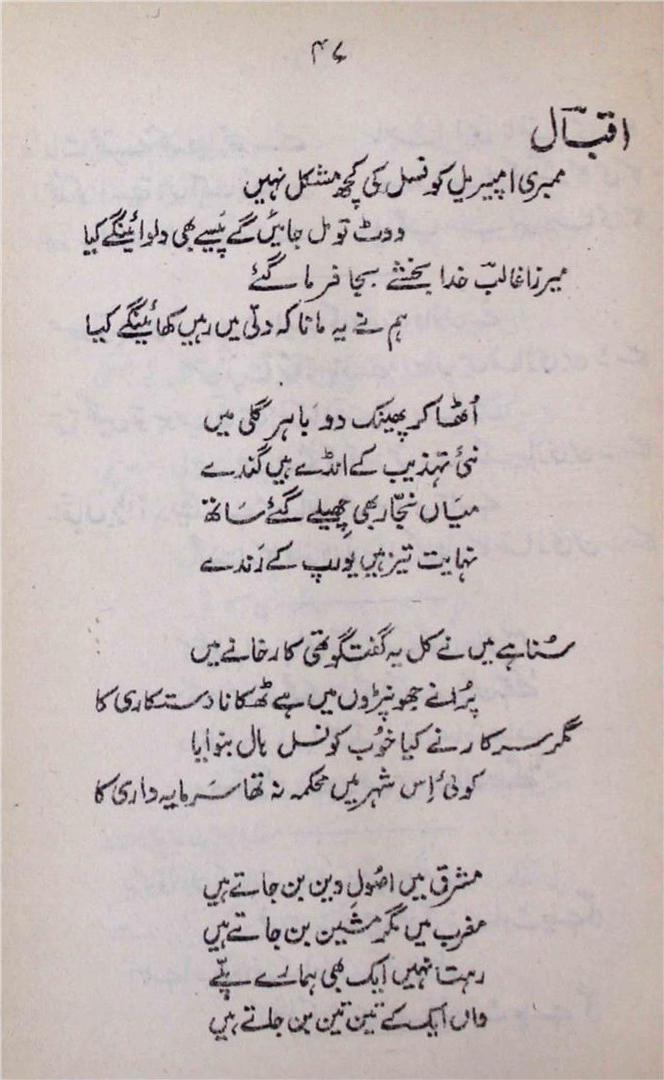 ۴۷
اقبالؔ
ممبری امپیریل کونسل کی کچھ مشکل نہیں
ووٹ تو مل جائیں گے پَیسے بھی دلوائینگے کیا
میرزا غالبؔ خدا بخشے بجا فرما گئے
ہم نے یہ مانا کہ دلّی میں رہیں کھائینگے کیا
اُٹھا کر پھینک دو باہر گلی میں
نئی تہذیب کے انڈے ہیں گندے
میاں نجّار بھی چھیلے گئے ساتھ
نہایت تیز ہیں یورپ کے رَندے
سُنا ہے میں نے کل یہ گفتگو تھی کارخانے میں
پُرانے جھونپڑوں میں ہے ٹھکانا دستکاری کا
مگر سرکار نے کیا خوُب کونسل ہال بنوایا
کوئی اِس شہر میں محکمہ نہ تھا سَرمایہ داری کا
مشرق میں اصُولِ دین بن جاتے ہیں
مغرب میں مگر مشین بن جاتے ہیں
رہتا نہیں ایک بھی ہمارے پلّے
واں ایک کے تین تین بن جاتے ہیں